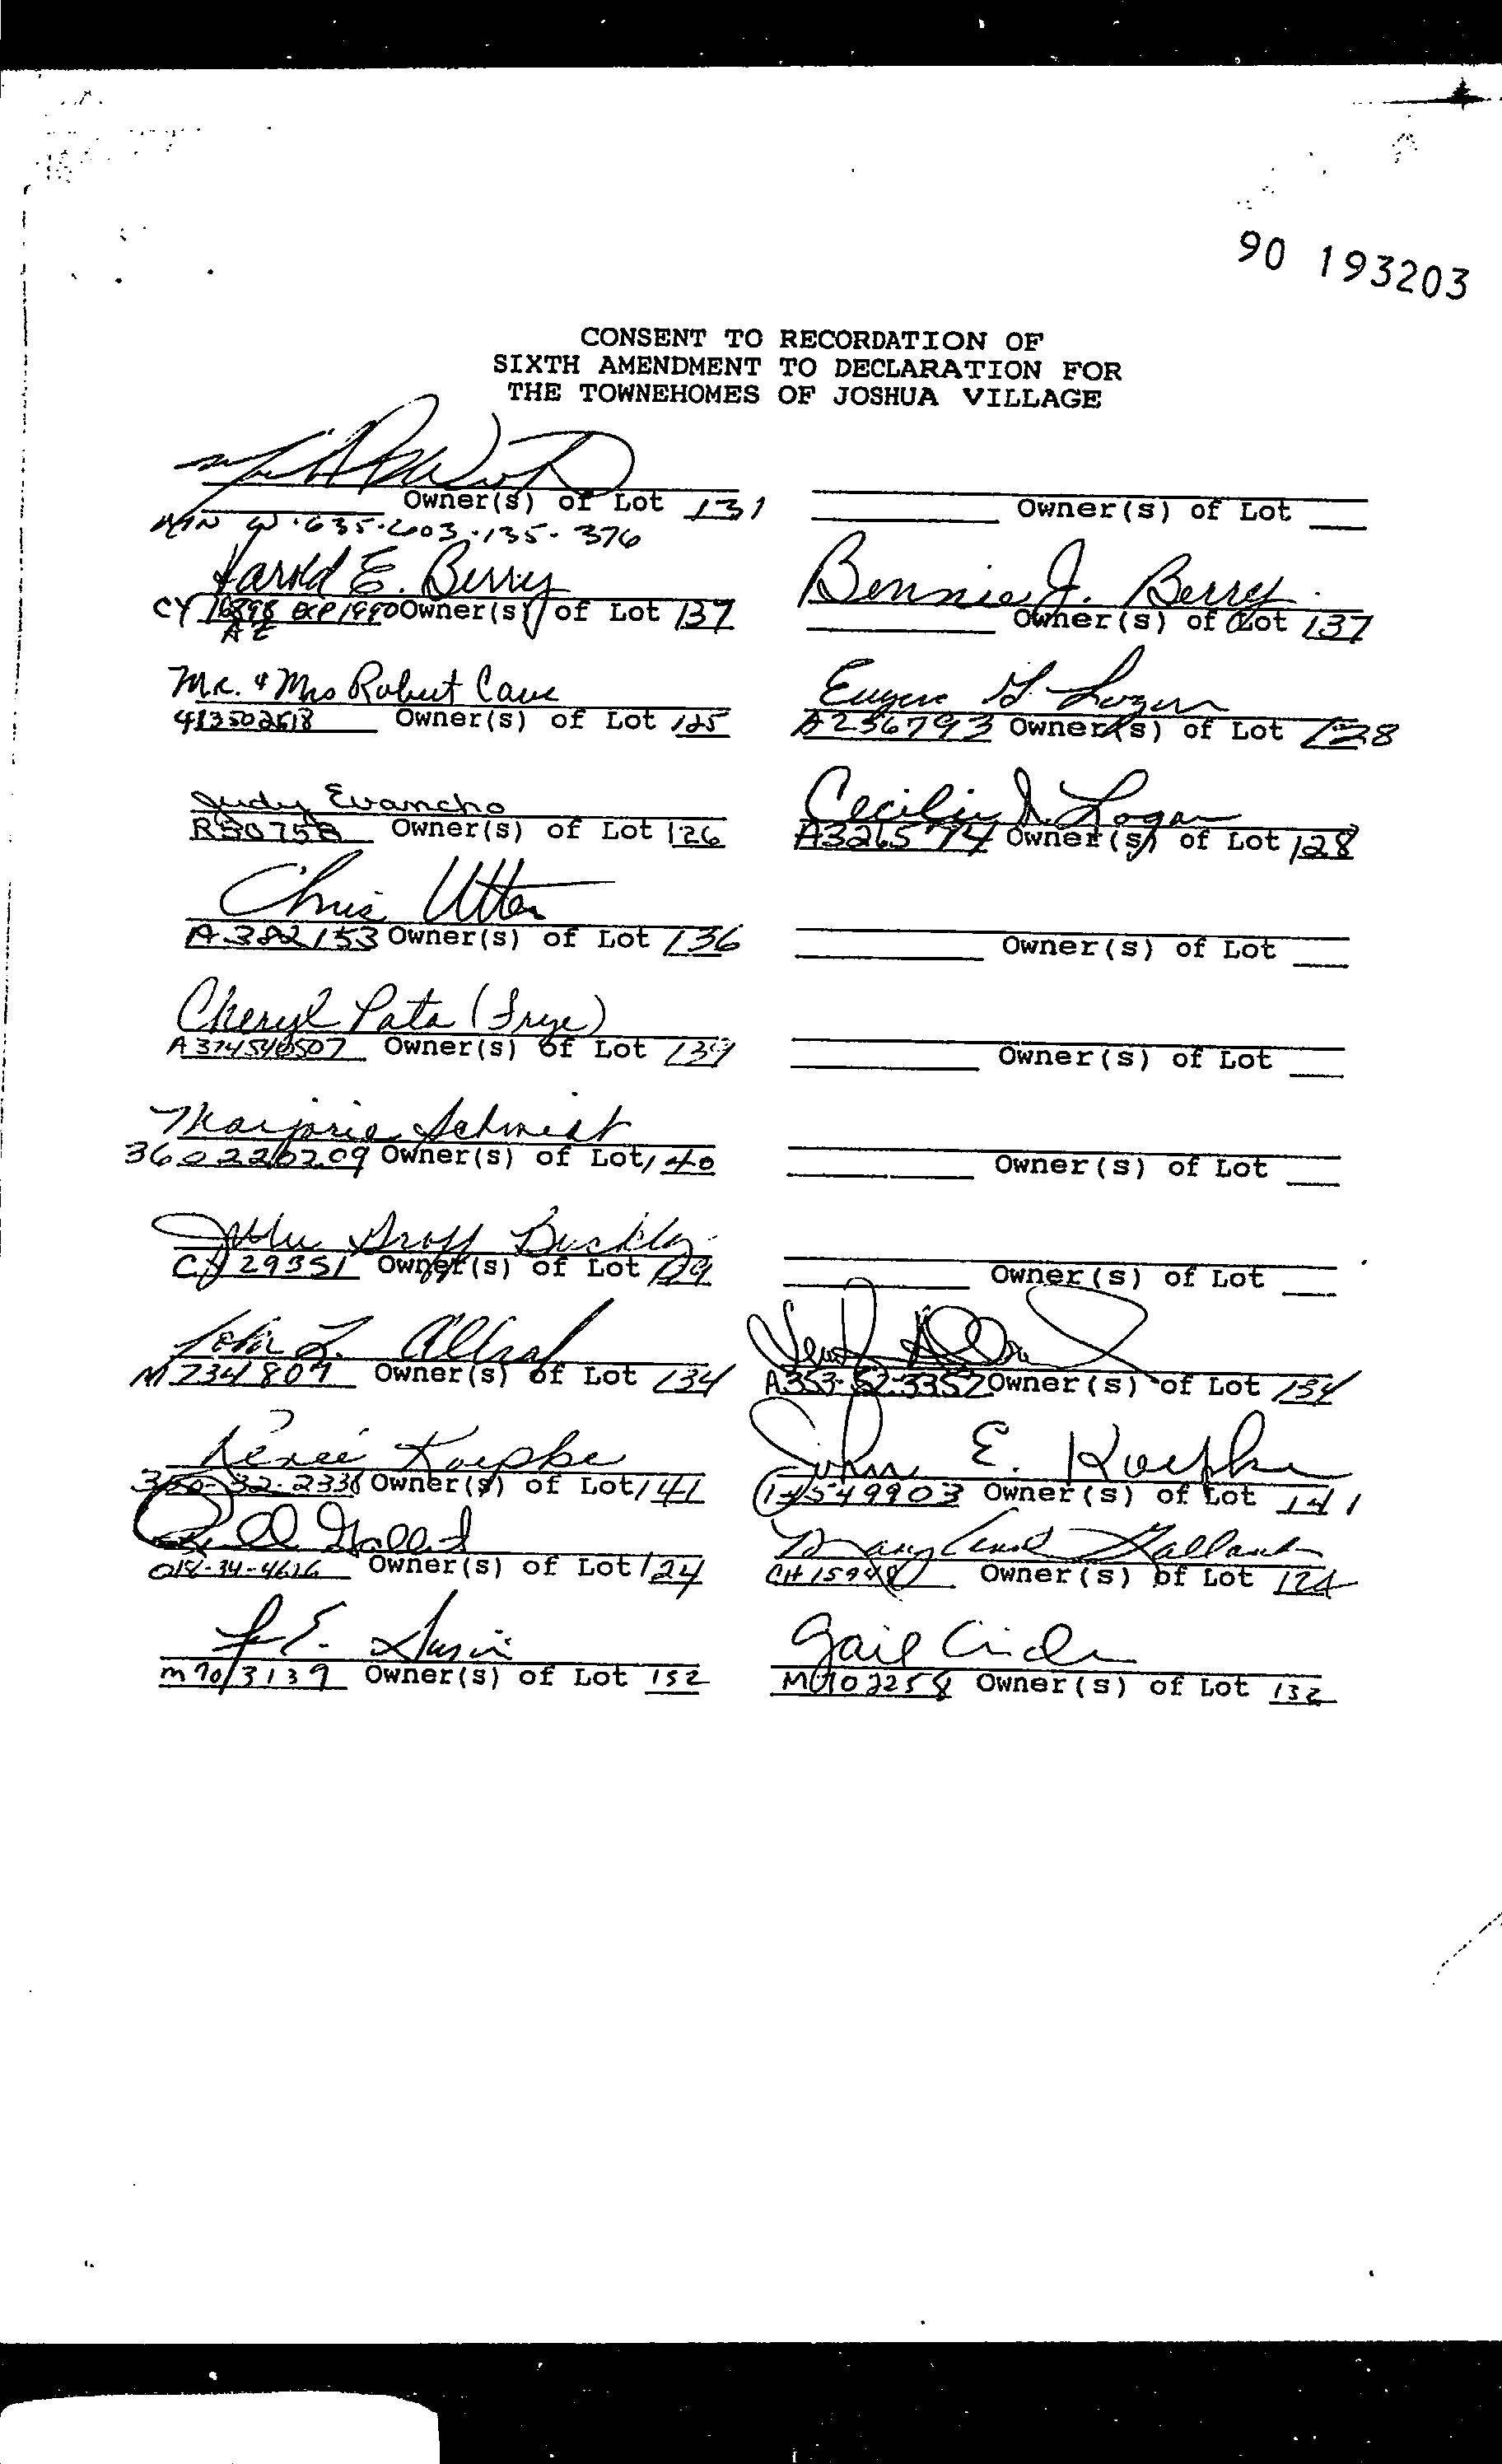 90 193203
CONSENT TO RECORDATION OF
SIXTH AMENDMENT TO DECLARATION FOR
THE TOWNEHOMES OF JOSHUA VILLAGE
Owner(s) of Lot 131
Owner(s) of Lot
635-603-135-376
Harold E. Berry
Bennie J. Berry
CY 16898 EXP 1990 Owner(s) of Lot 137
Owner(s) of Lot 137
AZ
Mr. & Mrs Robert Cave
Eugene G. Logan
413502618 Owner(s) of Lot 125
A256793 Owner(s) of Lot 128
Judy Evancho
Cecilia Logan
R30758 Owner(s) of Lot 126
A3265774 Owner(s) of Lot 128
Chris Utter
A382153 Owner(s) of Lot 136
Owner(s) of Lot
Cheryl Pata (Frye)
A374546507 Owner(s) of Lot 139
Owner(s) of Lot
Marjorie Schmidt
3602226209 Owner(s) of Lot 140
Owner(s) of Lot
Buckley
29351 Owner(s) of Lot 129
Owner(s) of Lot
John L.
M734809 Owner(s) of Lot 134
A353-52-3352 Owner(s) of Lot 134
Renee Koepke
John E. Koepke
350-32-2336 Owner(s) of Lot 141
549903 Owner(s) of Lot 141
Gallant
014-34-4616 Owner(s) of Lot 124
CH15948 Owner(s) of Lot 124
Gail
M7013139 Owner(s) of Lot 132
M702258 Owner(s) of Lot 132